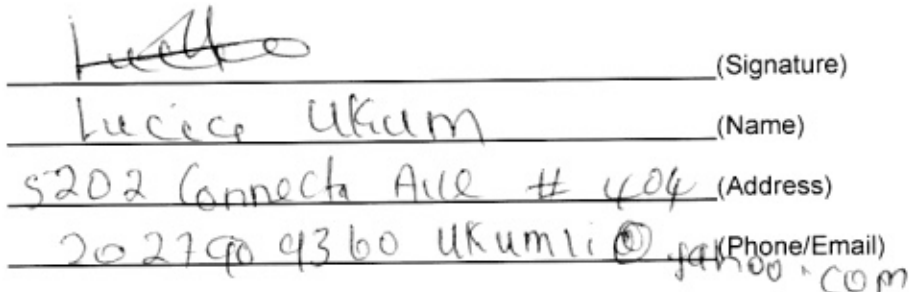 (Signature)
Lucia Ukum (Name)
5202 Connecta Ave # 404 (Address)
202790 9360 Ukumli@yahoo.com (Phone/Email)